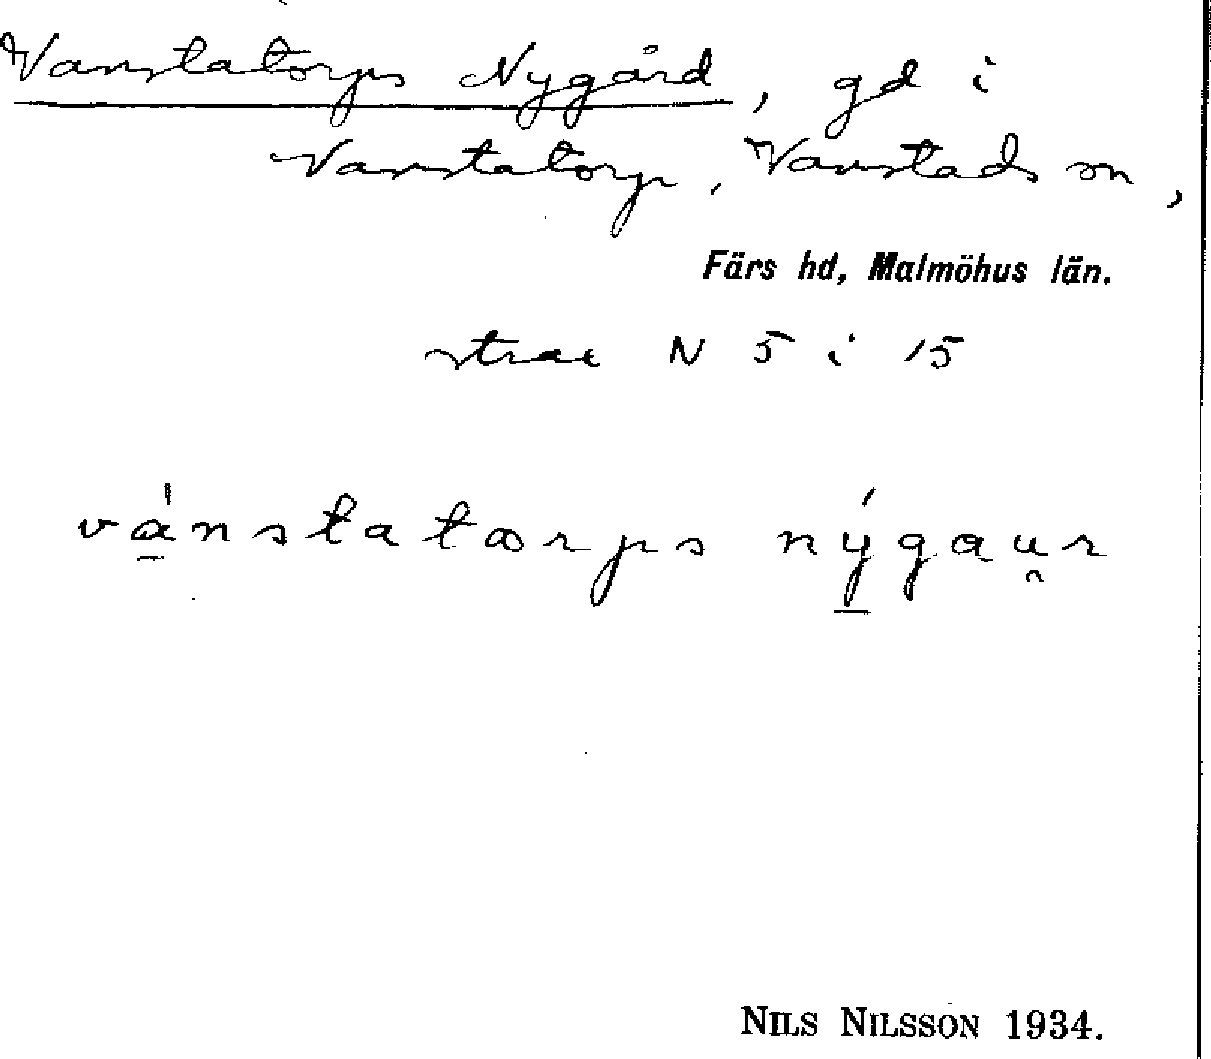 Vanstatorps Nygård, gd i
Vanstatorp, Vanstads sn,
Färs hd, Malmöhus län.
strax N 5 i 15
va̱̍nstatorps ný̱gau̯r
NILS NILSSON 1934.